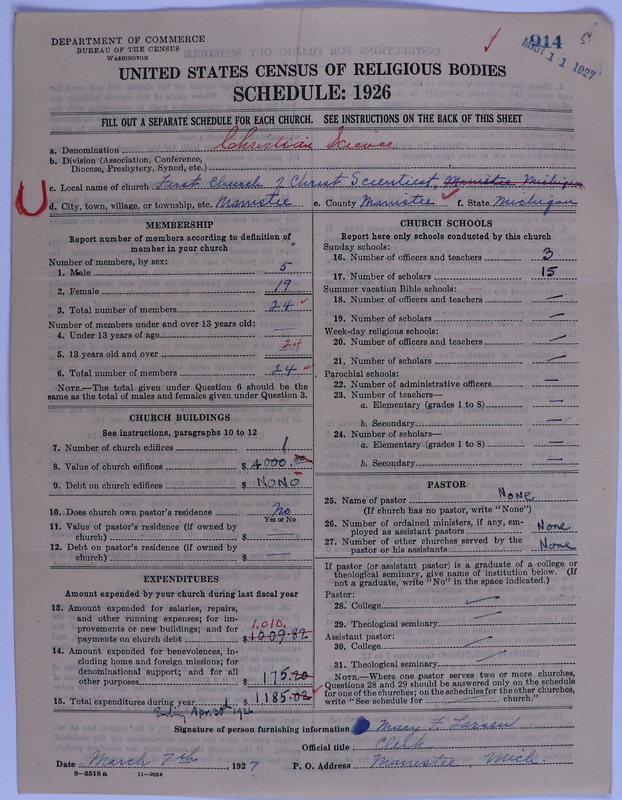 DEPARTMENT OF COMMERCE
BUREAU OF THE CENSUS
WASHINGTON
914
MAR 11 1927
UNITED STATES CENSUS OF RELIGIOUS BODIES
SCHEDULE: 1926
FILL OUT A SEPARATE SCHEDULE FOR EACH CHURCH. SEE INSTRUCTIONS ON THE BACK OF THIS SHEET
a. Denomination Christian Science
b. Division (Association, Conference,
Diocese, Presbytery, Synod, etc.)
c. Local name of church First Church of Christ Scientist Manistee Michigan
d. City, town, village, or township, etc. Manistee e. County Manistee f. State Michigan
MEMBERSHIP
Report number of members according to definition of
member in your church
Number of members, by sex:
1. Male 5
2. Female 19
3. Total number of members 24
Number of members under and over 13 years old:
4. Under 13 years of age
5. 13 years old and over 24
6. Total number of members 24
NOTE.—The total given under Question 6 should be the
same as the total of males and females given under Question 3.
CHURCH BUILDINGS
See instructions, paragraphs 10 to 12
7. Number of church edifices 1
8. Value of church edifices $4000.00
9. Debt on church edifices $ NONE
10. Does church own pastor's residence No
Yes or No
11. Value of pastor's residence (if owned by
church) $
12. Debt on pastor's residence (if owned by
church) $
EXPENDITURES
Amount expended by your church during last fiscal year
13. Amount expended for salaries, repairs,
and other running expenses; for im-
provements or new buildings; and for
payments on church debt $1009.82
1,010.
14. Amount expended for benevolences, in-
cluding home and foreign missions; for
denominational support; and for all
other purposes $175.20
15. Total expenditures during year $1,185.02
Ending Apr. 30th 1926
CHURCH SCHOOLS
Report here only schools conducted by this church
Sunday schools:
16. Number of officers and teachers 3
17. Number of scholars 15
Summer vacation Bible schools:
18. Number of officers and teachers —
19. Number of scholars —
Week-day religious schools:
20. Number of officers and teachers —
21. Number of scholars —
Parochial schools:
22. Number of administrative officers —
23. Number of teachers—
a. Elementary (grades 1 to 8) —
b. Secondary —
24. Number of scholars—
a. Elementary (grades 1 to 8) —
b. Secondary —
PASTOR
25. Name of pastor None
(If church has no pastor, write "None")
26. Number of ordained ministers, if any, em-
ployed as assistant pastors None
27. Number of other churches served by the
pastor or his assistants None
If pastor (or assistant pastor) is a graduate of a college or
theological seminary, give name of institution below. (If
not a graduate, write "No" in the space indicated.)
Pastor:
28. College —
29. Theological seminary —
Assistant pastor:
30. College —
31. Theological seminary —
NOTE.—Where one pastor serves two or more churches,
Questions 28 and 29 should be answered only on the schedule
for one of the churches; on the schedules for the other churches,
write "See schedule for church."
Signature of person furnishing information Mary F. Larsen
Official title Clerk
Date March 7th, 1927 P. O. Address Manistee Mich
8—5518 a 11—9054